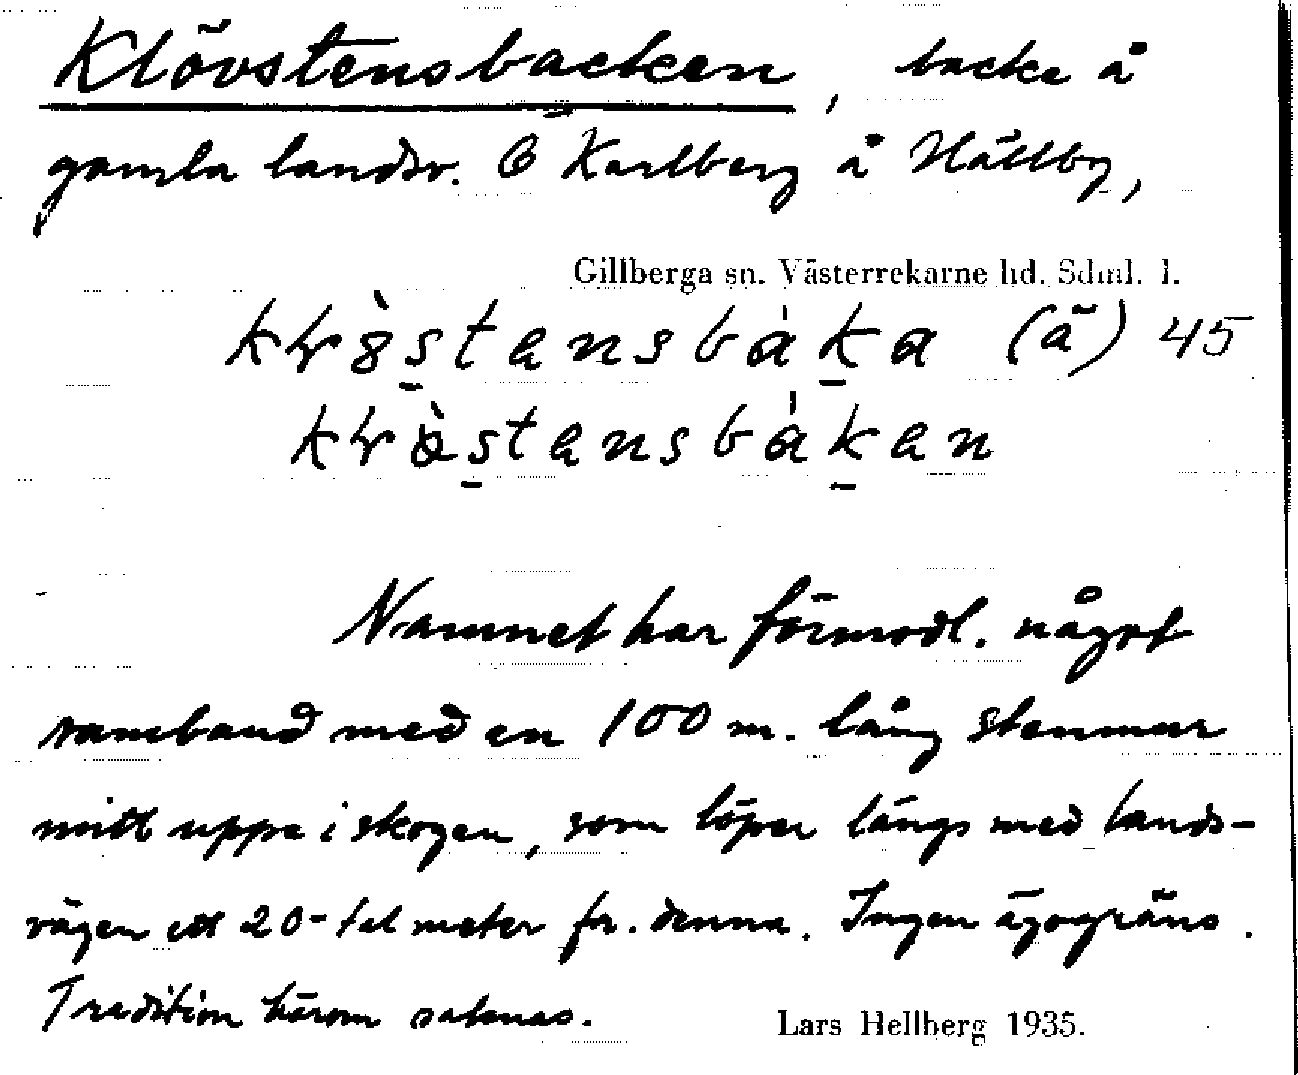 Klövstensbacken, backe å
gamla landsv. Ö Karlberg å Hällby,
Gillberga sn. Västerrekarne hd. Sdml. l.
(ä) 45
Namnet har förmodl. något
samband med en 100 m. lång stenmur
mitt uppe i skogen, som löper längs med lands-
vägen ett 20-tal meter fr. denna. Ingen ägogräns.
Tradition härom saknas.
Lars Hellberg 1935.